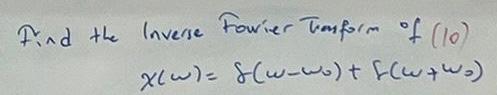 Find the Inverse Fourier Transform of (10)
x(ω) = δ(ω-ω₀) + δ(ω+ω₀)